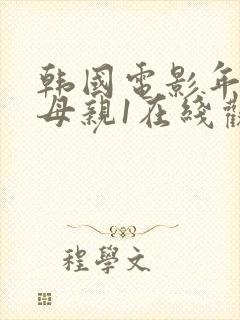 韩國電影年
母親1在綫觀
程學文